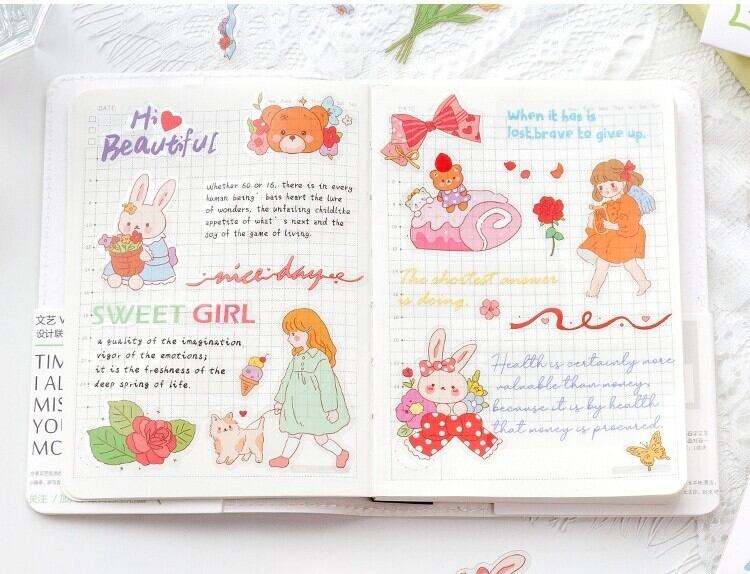 DATE:
Hi
Beautiful
Whether 60 or 16, there is in every
human being ' bais heart the lure
of wonders, the unfailing childlike
appetite of what ' s next and the
joy of the game of living.
nice day
SWEET GIRL
a quality of the imagination,
vigor of the emotions;
it is the freshness of the
deep spring of life.
DATE:
When it has is
lost,brave to give up.
The shortest answer
is doing.
Health is certainly more
valuable than money,
because it is by health
that money is procured
文艺
设计联
TIM
I AL
MIS
YOU
MO
关注